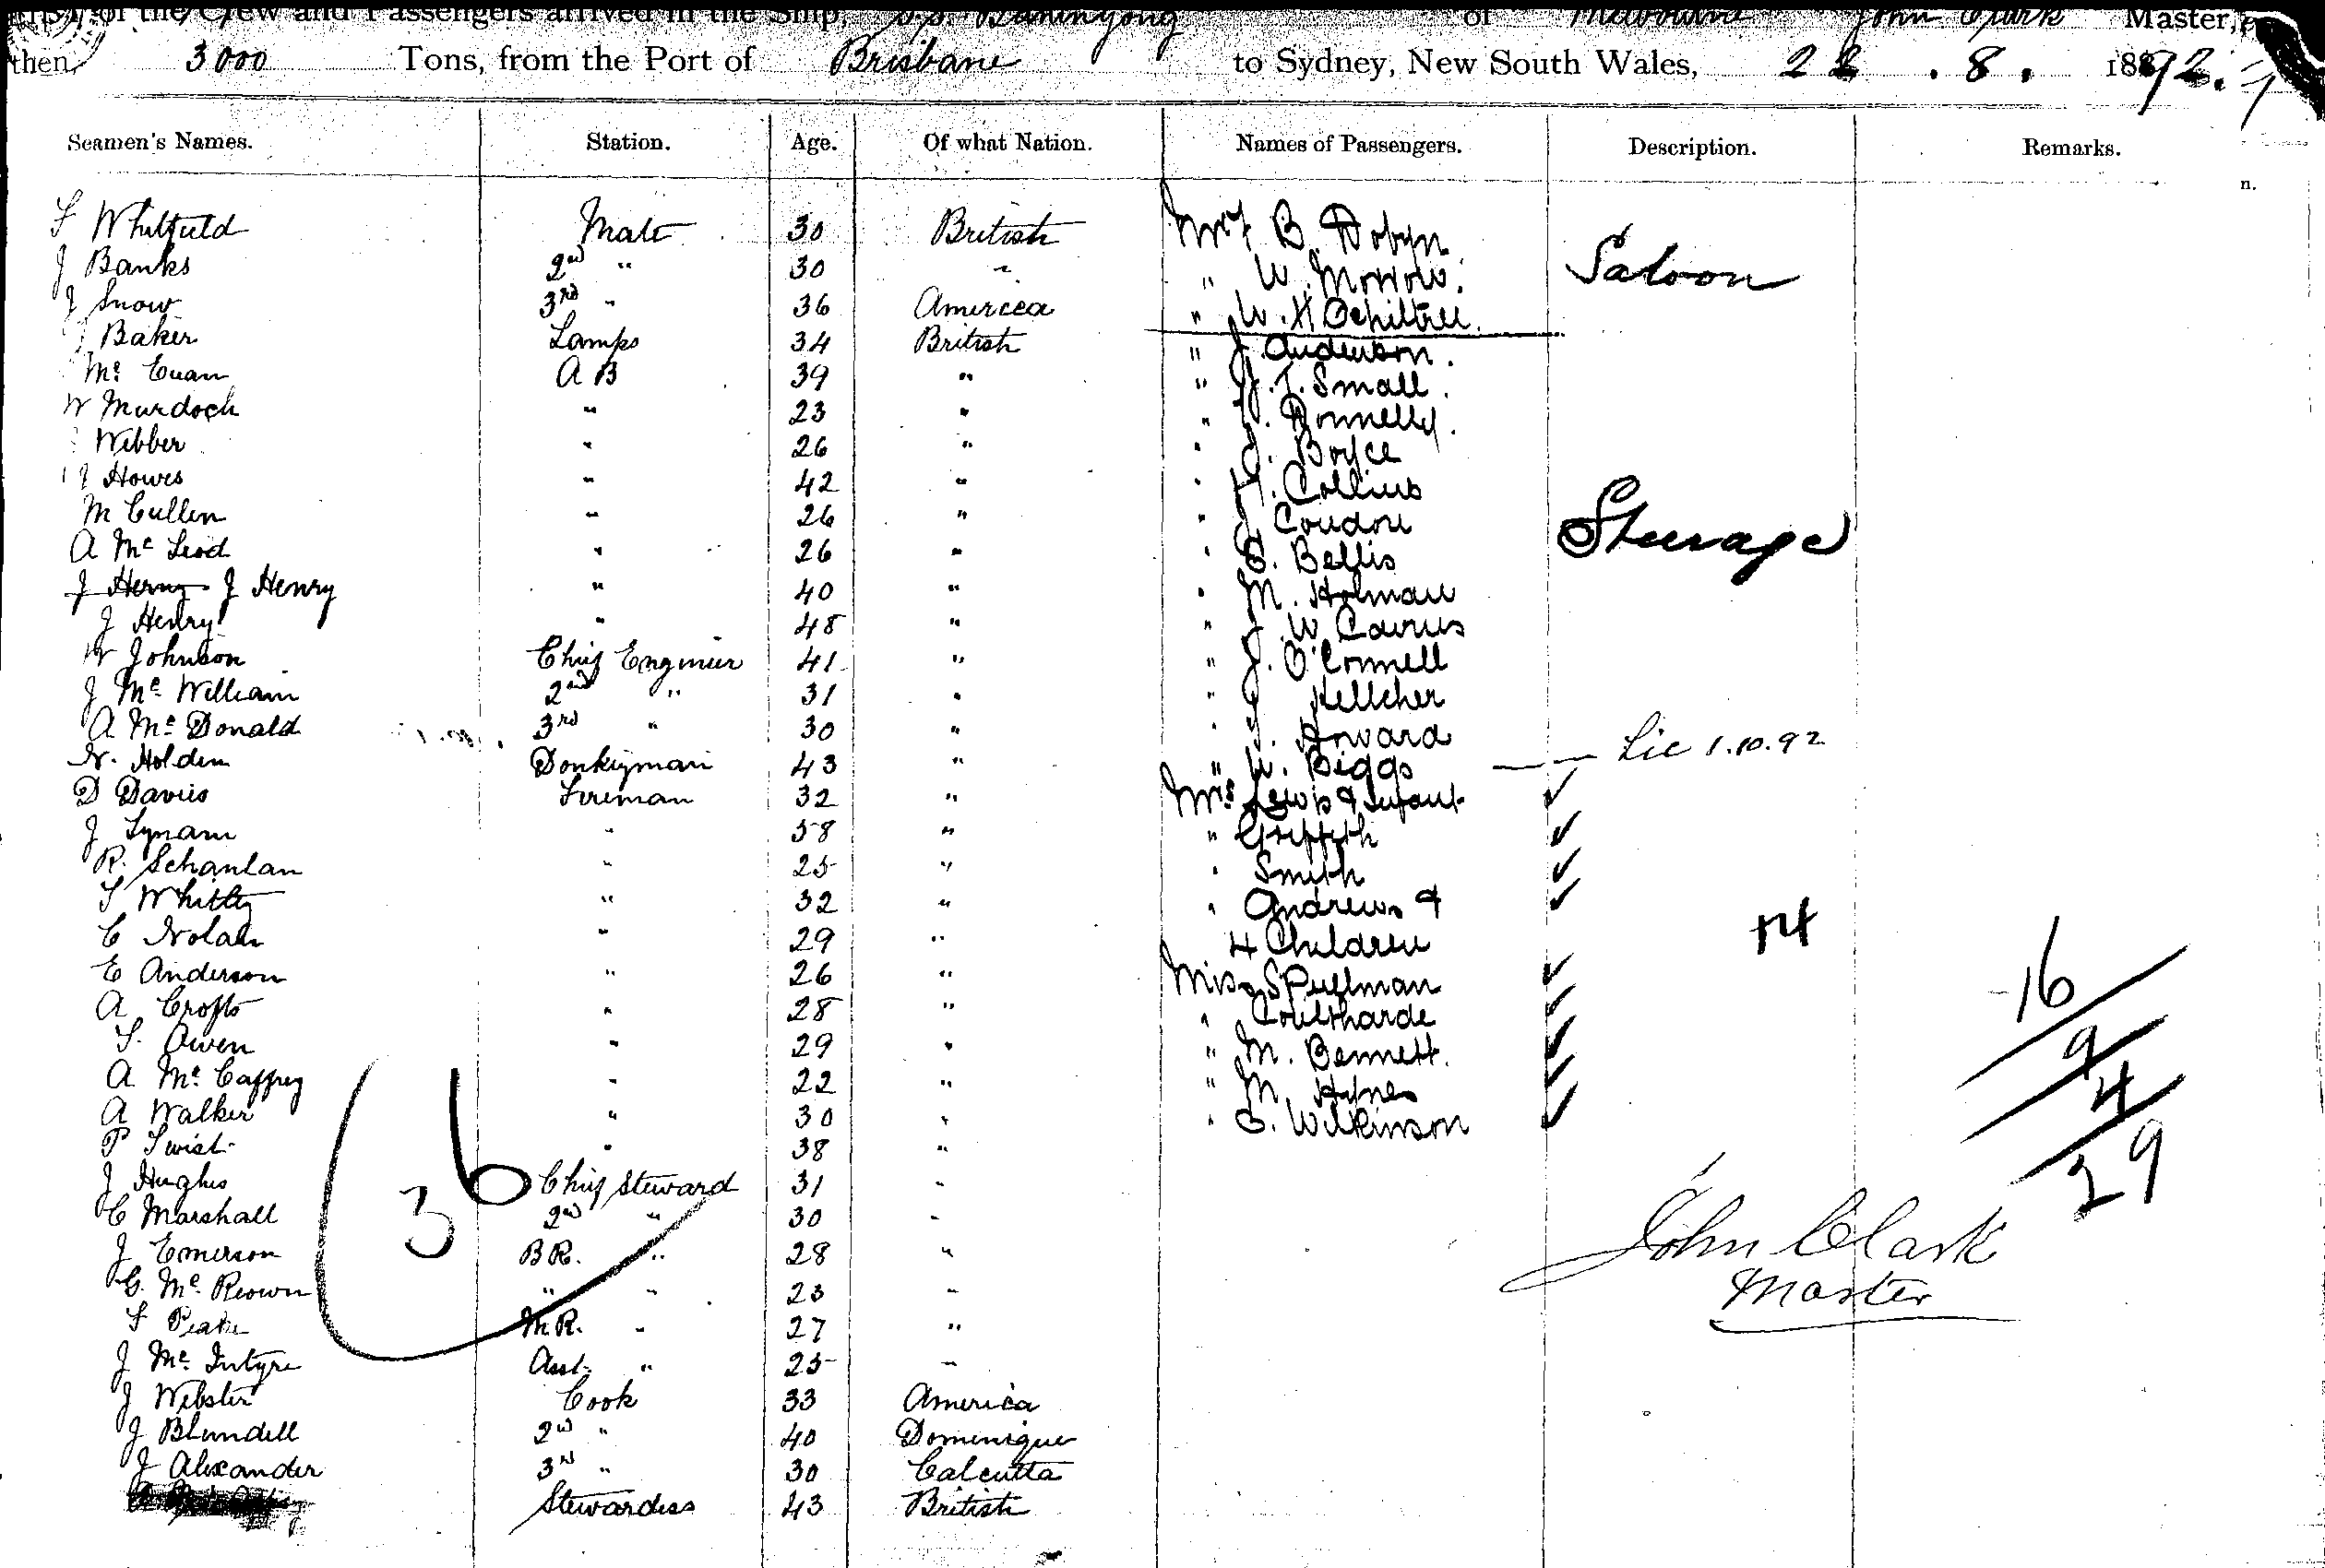 List of the Crew and Passengers arrived in the Ship, S.S. Buninyong of Melbourne John Clark Master,
then, 3000 Tons, from the Port of Brisbane to Sydney, New South Wales, 22 . 8 . 1892.
Seamen's Names. Station. Age. Of what Nation. Names of Passengers. Description. Remarks.
Whitfield Mate 30 British Mr B. Dobyn Saloon
J Banks 2nd " 30 " " W. Morrow.
J Snow 3rd " 36 Amercea " W. H Ochiltree.
Baker Lamps 34 British " J Anderson.
Mc Euan A B 39 " " J. T. Small.
W Murdoch " 23 " " Donnelly.
Webber " 26 " " J. Boyce
J Howes " 42 " " H. Collins
M Cullen " 26 " " J Coudon Steerage
A Mc Leod " 26 " " Bellis
J Herny J Henry " 40 " " M. Holman
J Henry " 48 " " J W Cairns
W Johnson Chief Engineer 41 " " J. O'Connell
J Mc William 2nd " 31 " " J Kellcher
A Mc Donald 3rd " 30 " " Howard
N. Holden Donkeyman 43 " " W. Biggs Lic 1.10.92
D Davies Fireman 32 " Mrs Lewis & Infant
J Lynam " 58 " " Griffith
R. Schanlan " 25 " " Smith
Whitty " 32 " " Andrews &
C Nolan " 29 " 4 Children 14
E Anderson " 26 " Miss S Pullman 16
A Crofts " 28 " " Coultharde
Owen " 29 " " M. Bennett. 9
A Mc Caffrey " 22 " " M. Hynes 4
A Walker " 30 " " Wilkinson
P Twist " 38 " 29
J Hughes Chief Steward 31 "
C Marshall 2nd " 30 " 36
J Emerson B R. " 28 " John Clark
G. Mc Keown " " 23 " Master
Peake M. R. " 27 "
J Mc Intyre Asst. " 25 "
J Webster Cook 33 America
J Blundell 2nd " 40 Dominique
J Alexander 3rd " 30 Calcutta
Stewardess 43 British